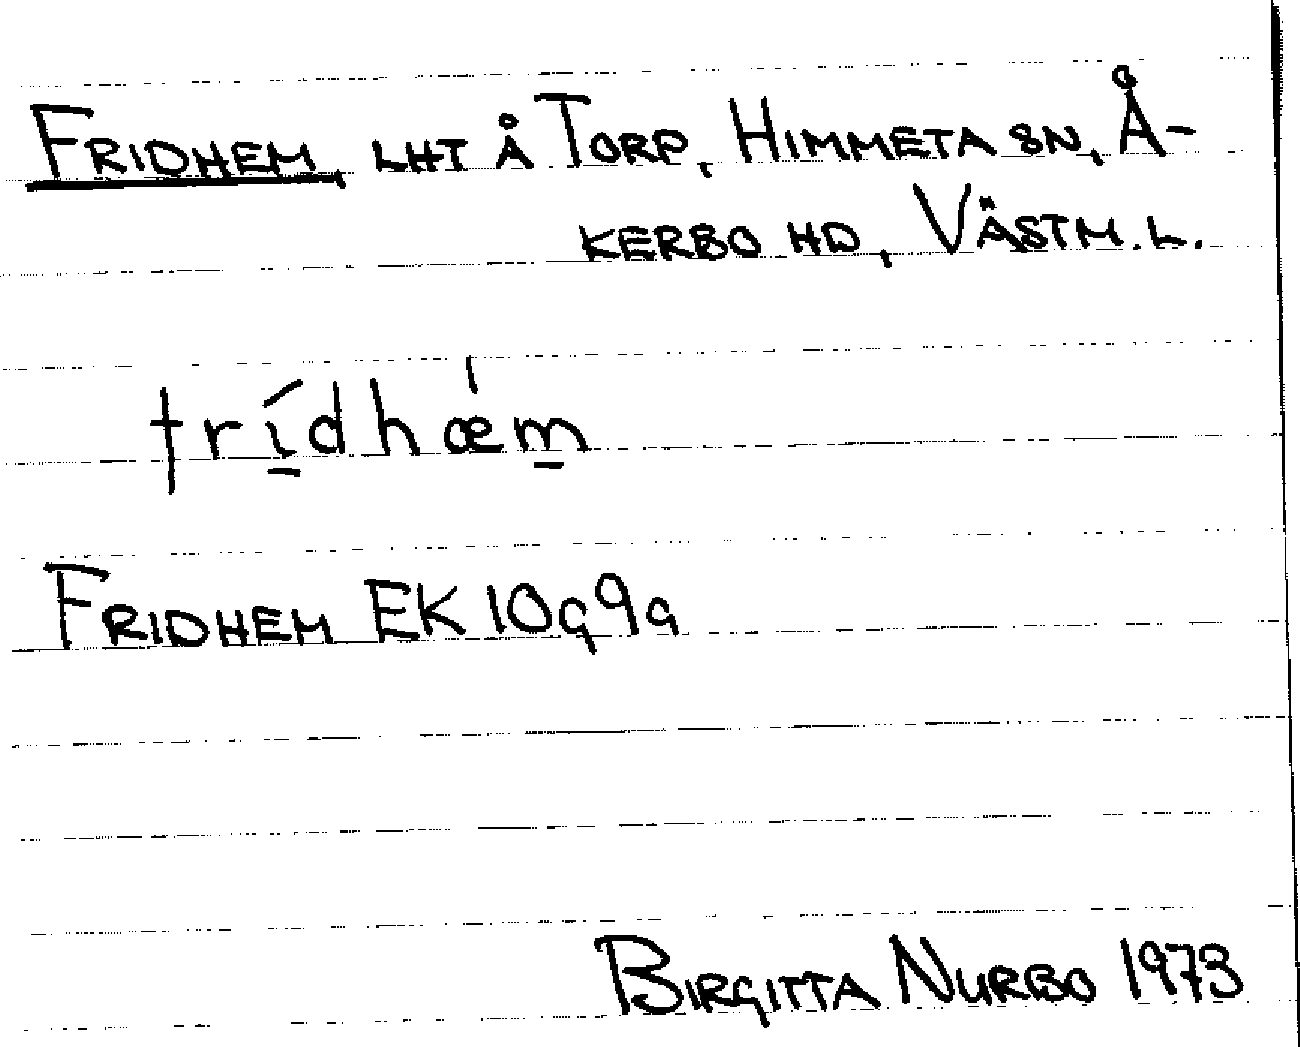 FRIDHEM, LHT Å TORP, HIMMETA SN, Å-
KERBO HD, VÄSTM. L.
frí̱dhæ̍m̱
FRIDHEM EK 10G9G
BIRGITTA NURBO 1973